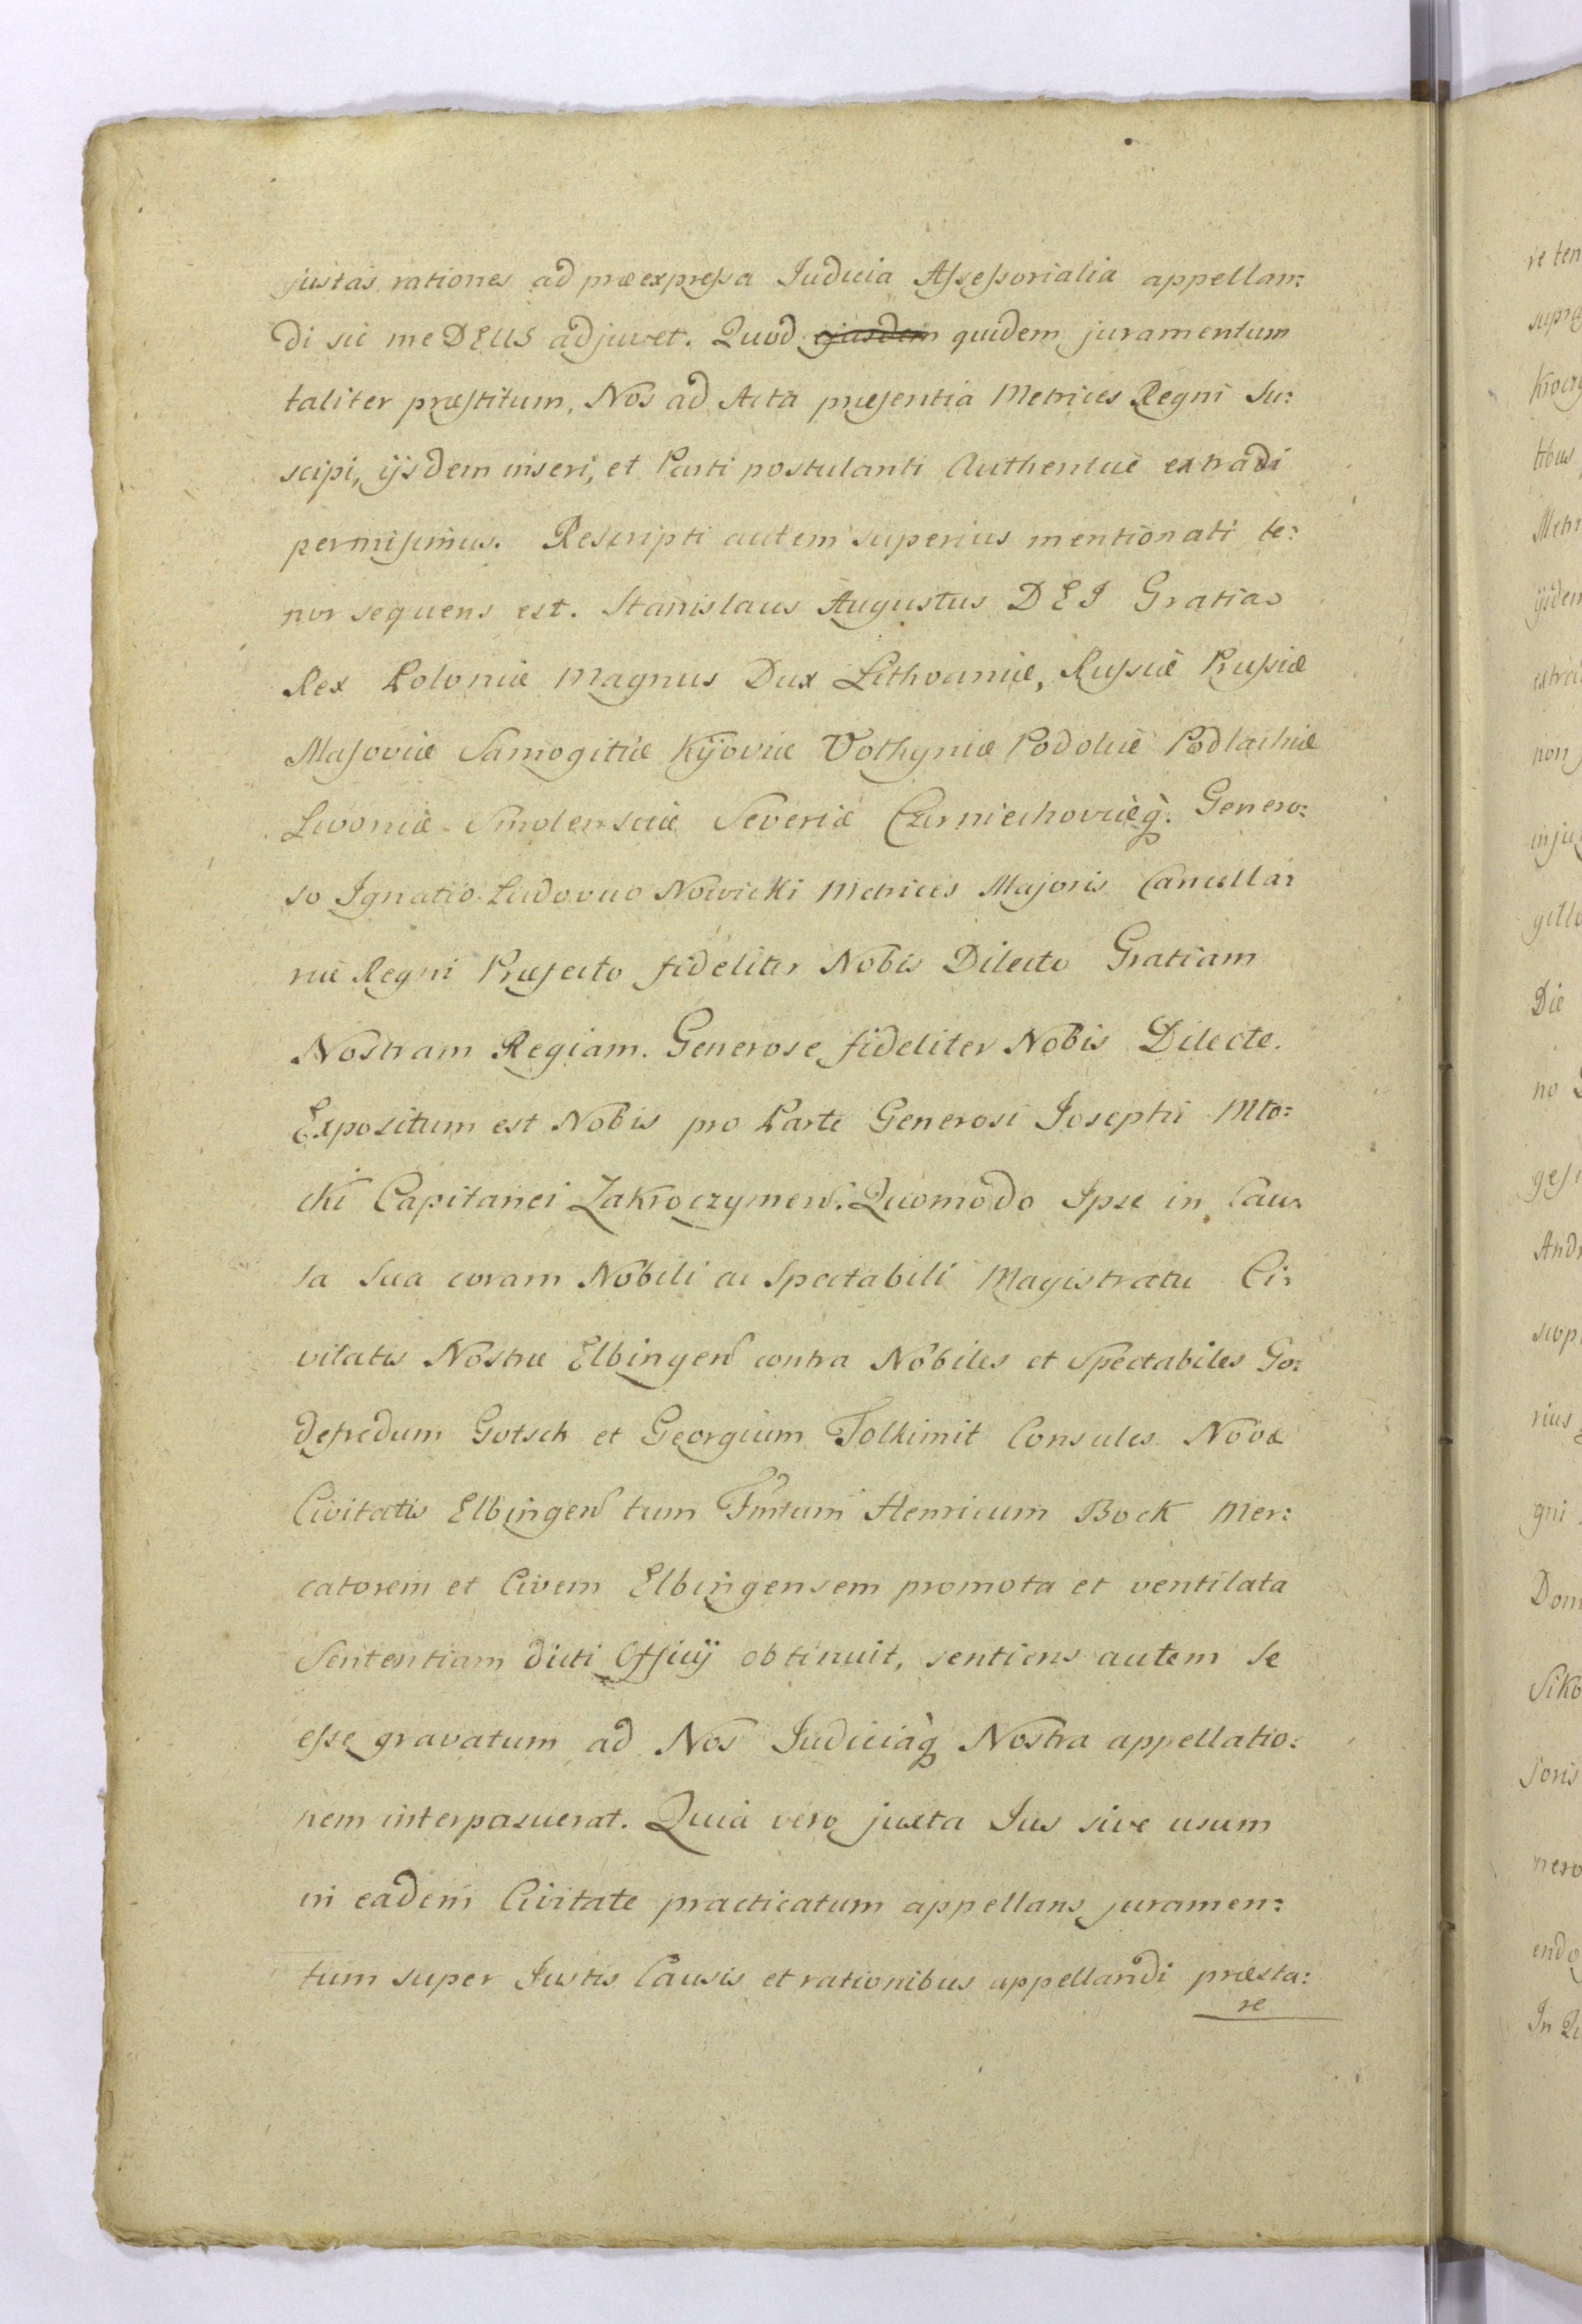 justas rationes ad præexpressa Judicia Assessorialia appellan:
di sic me DEUS adjuvet. Quod ejusdem quidem juramentum
taliter præstitum, Nos ad Acta præsentia Metrices Regni Su:
scipi, ijsdem inseri, et Parti postulanti Authenticè extradi
permisimus. Rescripti autem superius mentionati te:
nor sequens est. Stanislaus Augustus DEI Gratia
Rex Poloniæ Magnus Dux Lithvaniæ, Russiæ Prussiæ
Masoviæ Samogitiæ Kijoviæ Volhyniæ Podoliæ Podlachiæ
Livoniæ Smolensciæ Severiæ Czerniechoviæq. Genero:
so Ignatio Ludovico Nowicki Metrices Majoris Cancella:
riæ Regni Præfecto fideliter Nobis Dilecto Gratiam
Nostram Regiam. Generose fideliter Nobis Dilecte.
Expositum est Nobis pro Parte Generosi Josephi Mło:
cki Capitanei Zakroczymens. Quomodo Ipse in Cau:
sa Sua coram Nobili ac Spectabili Magistratu Ci:
vitatis Nostræ Elbingens contra Nobiles et Spectabiles Go:
defredum Gotsch et Georgium Tolkimit Consules Novæ
Civitatis Elbingens tum Fmtum Henricum Bock Mer:
catorem et Civem Elbingensem promota et ventilata
Sententiam dicti Officij obtinuit, sentiens autem Se
esse gravatum ad Nos Judiciaq Nostra appellatio:
nem interposuerat. Quia vero juxta Jus sive usum
in eadem Civitate practicatum appellans juramen:
tum super Justis Causis et rationibus appellandi præsta:
re